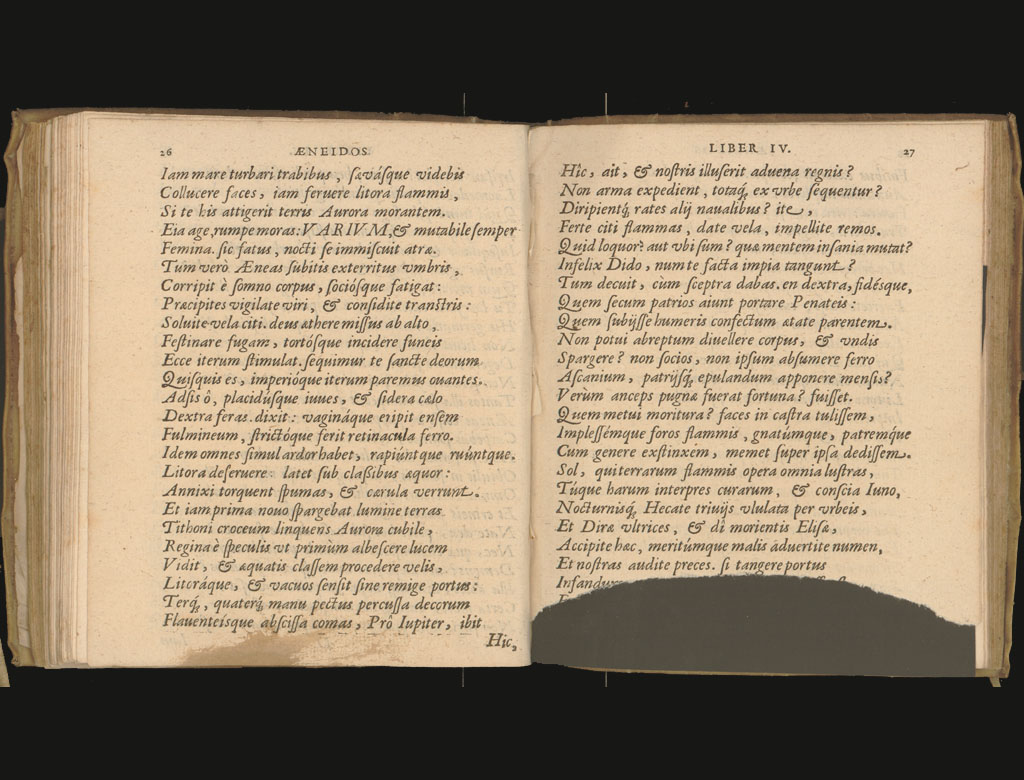 26 ÆNEIDOS
Iam mare turbari trabibus, ſævásque videbis
Collucere faces, iam feruere litora flammis,
Si te his attigerit terris Aurora morantem.
Eia age, rumpe moras: VARIVM, & mutabile ſemper
Femina. ſic fatus, nocti ſe immiſcuit atræ.
Tum verò Æneas ſubitis exterritus vmbris,
Corripit è ſomno corpus, ſocióſque fatigat:
Præcipites vigilate viri, & conſidite tranſtris:
Soluite vela citi. deus æthere miſſus ab alto,
Feſtinare fugam, tortóſque incidere funeis
Ecce iterum ſtimulat. ſequimur te ſancte deorum
Quiſquis es, imperióque iterum paremus ouantes.
Adſis ô, placidúſque iuues, & ſidera cælo
Dextra feras. dixit: vagináque eripit enſem
Fulmineum, ſtrictóque ferit retinacula ferro.
Idem omnes ſimul ardor habet, rapiúntque ruúntque.
Litora deſeruere latet ſub claßibus æquor:
Annixi torquent ſpumas, & cærula verrunt.
Et iam prima nouo ſpargebat lumine terras
Tithoni croceum linquens Aurora cubile,
Regina è ſpeculis vt primùm albeſcere lucem
Vidit, & æquatis claſſem procedere velis,
Litoráque, & vacuos ſenſit ſine remige portus:
Terq́, quaterq́; manu pectus percuſſa decorum
Flauenteíſque abſciſſa comas, Prô Iupiter, ibit
Hic,
LIBER IV. 27
Hîc, ait, & noſtris illuſerit aduena regnis?
Non arma expedient, totaq́; ex vrbe ſequentur?
Diripientq́; rates alij naualibus? ite,
Ferte citi flammas, date vela, impellite remos.
Quid loquor? aut vbi ſum? quæ mentem inſania mutat?
Infelix Dido, num te facta impia tangunt?
Tum decuit, cùm ſceptra dabas. en dextra, fidéſque,
Quem ſecum patrios aiunt portare Penateis:
Quem ſubijſſe humeris confectum ætate parentem.
Non potui abreptum diuellere corpus, & vndis
Spargere? non ſocios, non ipſum abſumere ferro
Aſcanium, patrijſq́; epulandum apponere menſis?
Verum anceps pugnæ fuerat fortuna? fuiſſet.
Quem metui moritura? faces in caſtra tuliſſem,
Impleſſémque foros flammis, gnatúmque, patremq́ue
Cum genere exſtinxem, memet ſuper ipſa dediſſem.
Sol, qui terrarum flammis opera omnia luſtras,
Túque harum interpres curarum, & conſcia Iuno,
Nocturniſq́; Hecate triuijs vlulata per vrbeis,
Et Diræ vltrices, & dî morientis Eliſæ,
Accipite hæc, meritúmque malis aduertite numen,
Et noſtras audite preces. ſi tangere portus